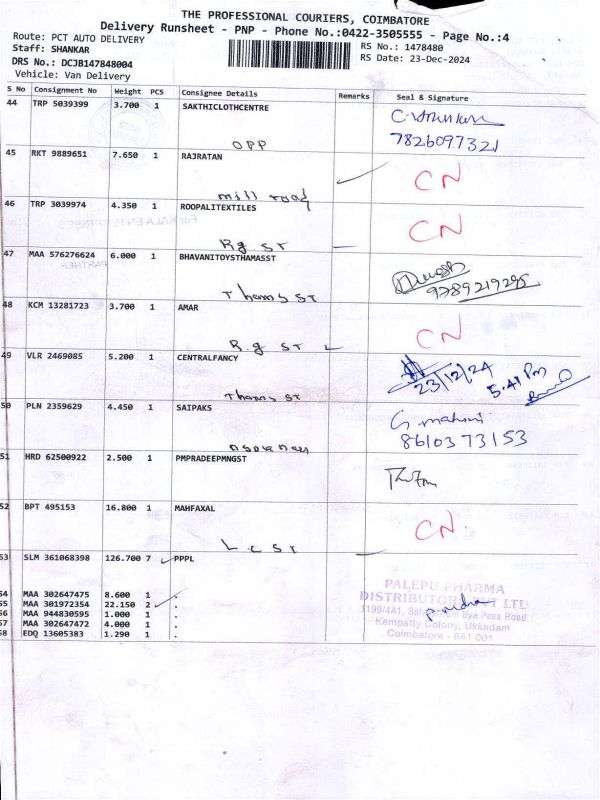 THE PROFESSIONAL COURIERS, COIMBATORE
Delivery Runsheet - PNP - Phone No.:0422-3505555 - Page No.:4
Route: PCT AUTO DELIVERY
RS No.: 1478480
Staff: SHANKAR
RS Date: 23-Dec-2024
DRS No.: DCJB147848004
Vehicle: Van Delivery
S No Consignment No Weight PCS Consignee Details Remarks Seal & Signature
44 TRP 5039399 3.700 1 SAKTHICLOTHCENTRE
7826097321
OPP
45 RKT 9889651 7.650 1 RAJRATAN
CN
mill road
46 TRP 3039974 4.350 1 ROOPALITEXTILES
CN
Rg ST
47 MAA 576276624 6.000 1 BHAVANITOYSTHAMASST
9789219295
Thams ST
48 KCM 13281723 3.700 1 AMAR
CN
R.g ST
49 VLR 2469085 5.200 1 CENTRALFANCY
23/12/24 5:41 Pm
Thams ST
50 PLN 2359629 4.450 1 SAIPAKS
8610373153
51 HRD 62500922 2.500 1 PMPRADEEPMNGST
52 BPT 495153 16.800 1 MAHFAXAL
CN
L C ST
53 SLM 361068398 126.700 7 PPPL
54 MAA 302647475 8.600 1 .
55 MAA 301972354 22.150 2 .
56 MAA 944830595 1.000 1 .
57 MAA 302647472 4.000 1 .
58 EDQ 13605383 1.290 1 .
PALEPU PHARMA
DISTRIBUTORS PVT LTD
1199/4A1, Bye Pass Road
Kempatty Colony, Ukkadam
Coimbatore - 641 001